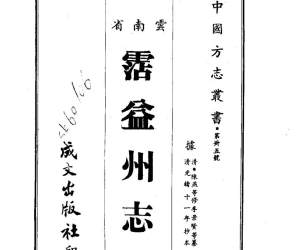 中國方志叢書·第卅五號
據清·陳燕等修李景賢等纂
清光緒十一年抄本
雲南省
霑益州志
成文出版社印